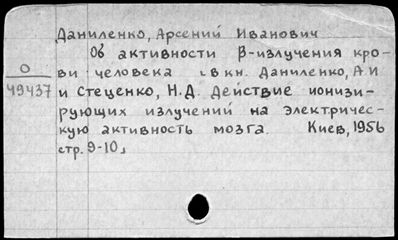 Даниленко, Арсений Иванович
Об активности β-излучения кро-
О
ви человека ⟨ в кн. Даниленко, А.И
49437
и Стеценко, Н.Д. Действие ионизи-
рующих излучений на электричес-
кую активность мозга. Киев, 1956
стр. 9-10